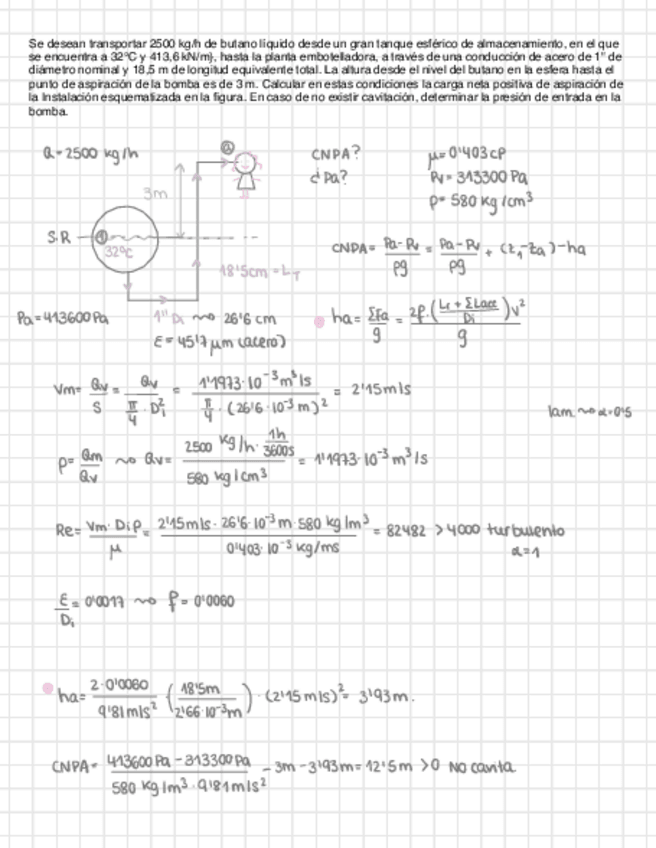 Se desean transportar 2500 kg/h de butano líquido desde un gran tanque esférico de almacenamiento, en el que
se encuentra a 32°C y 413,6 kN/m), hasta la planta embotelladora, a través de una conducción de acero de 1" de
diámetro nominal y 18,5 m de longitud equivalente total. La altura desde el nivel del butano en la esfera hasta el
punto de aspiración de la bomba es de 3 m. Calcular en estas condiciones la carga neta positiva de aspiración de
la Instalación esquematizada en la figura. En caso de no existir cavitación, determinar la presión de entrada en la
bomba.
Q = 2500 kg/h
a
CNPA?
μ = 0'403 cP
¿Pa?
Pv = 313300 Pa
ρ = 580 kg/cm³
3m
S.R
1
32ºC
CNPA = Pa - Pv / ρg = Pa - Pv / ρg + (z₁ - za) - ha
18'5cm = LT
Pa = 413600 Pa
1" Di ~> 26'6 cm
ha = ΣFa / g = 2f · (Lt + ΣLacc / Di) v² / g
ε = 45'7 μm (acero)
Vm = Qv / S = Qv / π/4 · Di² = 1'1973 · 10⁻³ m³/s / π/4 · (26'6 · 10⁻³ m)² = 2'15 m/s
lam ~> α = 0'5
ρ = Qm / Qv ~> Qv = 2500 kg/h · 1h / 3600s / 580 kg/cm³ = 1'1973 · 10⁻³ m³/s
Re = Vm · Di ρ / μ = 2'15 m/s · 26'6 · 10⁻³ m · 580 kg/m³ / 0'403 · 10⁻³ kg/ms = 82482 > 4000 turbulento
α = 1
ε / Di = 0'0017 ~> f = 0'0060
ha = 2 · 0'0060 / 9'81 m/s² (18'5m / 2'66 · 10⁻³ m) · (2'15 m/s)² = 3'93 m.
CNPA = 413600 Pa - 313300 Pa / 580 kg/m³ · 9'81 m/s² - 3m - 3'93m = 12'5 m > 0 No cavita